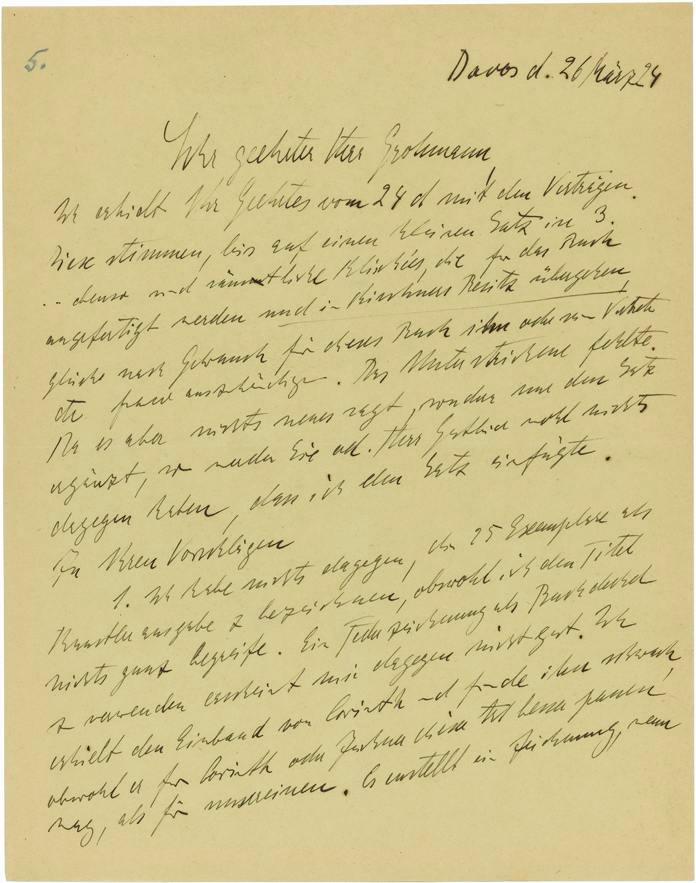 5.
Davos d. 26 März 24
Sehr geehrter Herr Grohmann
Ich erhielt Ihr Geehrtes vom 24 d mit den Verträgen.
Diese stimmen, bis auf einen kleinen Satz in 3.
.. ebenso und sämmtliche Klischées, die für das Buch
angefertigt werden und in Kirchners Besitz übergehen
gleich nach Gebrauch für dieses Buch ihm oder
frei auszuhändigen. Das Unterstrichene fehlte.
Da es aber nichts neues sagt, sondern nur den Satz
ergänzt, so werden Sie od. Herr Gotthard wohl nichts
dagegen haben, dass ich den Satz einfügte.
Zu Ihren Vorschlägen
1. Ich habe nichts dagegen, die 25 Exemplare als
Künstlerausgabe z bezeichnen, obwohl ich den Titel
nicht ganz begreife. Ein Federzeichnung als Buchdeckel
z verwenden erscheint mir dagegen nicht gut. Ich
erhielt den Einband von Corinth und finde ihn schwach,
obwohl er für Corinth oder diese Art besser passen
mag, als für unsereinen. Es entstellt ein Zeichnung, wenn